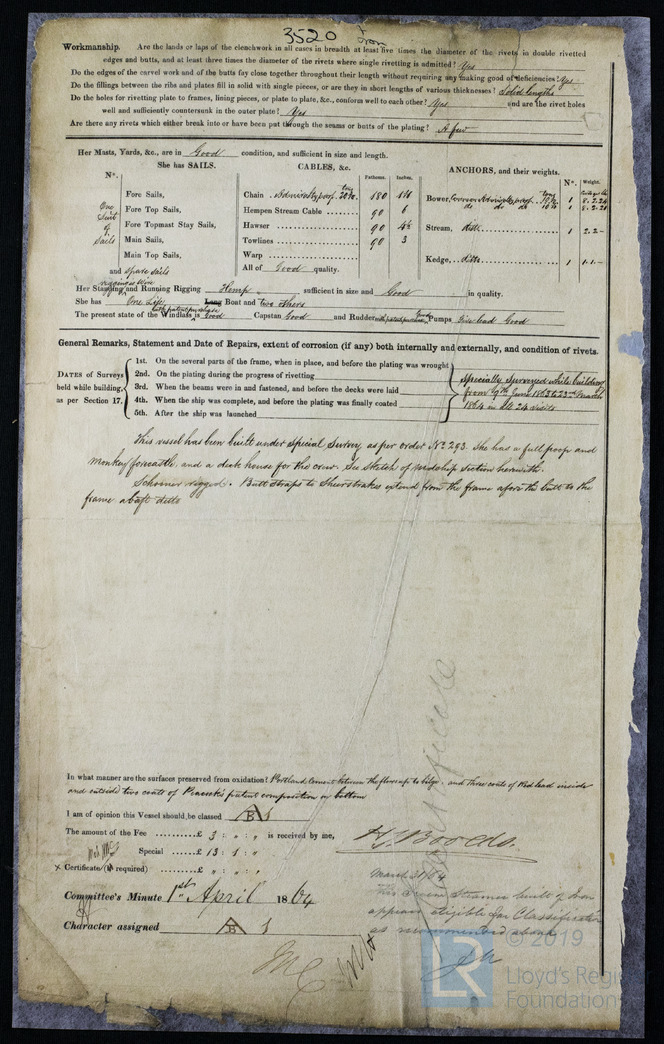 3520 Iron
Workmanship. Are the lands or laps of the clenchwork in all cases in breadth at least five times the diameter of the rivets in double rivetted
edges and butts, and at least three times the diameter of the rivets where single rivetting is admitted? Yes
Do the edges of the carvel work and of the butts fay close together throughout their length without requiring any making good of deficiencies? Yes
Do the fillings between the ribs and plates fill in solid with single pieces, or are they in short lengths of various thicknesses? Solid lengths
Do the holes for rivetting plate to frames, lining pieces, or plate to plate, &c., conform well to each other? Yes and are the rivet holes
well and sufficiently countersunk in the outer plate? Yes
Are there any rivets which either break into or have been put through the seams or butts of the plating? A few
Her Masts, Yards, &c., are in Good condition, and sufficient in size and length.
She has SAILS.
CABLES, &c.
Fathoms. Inches.
ANCHORS, and their weights.
Nº. Weight.
Nº.
One Suit of Sails
Fore Sails,
Fore Top Sails,
Fore Topmast Stay Sails,
Main Sails,
Main Top Sails,
and spare sails
Chain Admiralty proof 180
Hempen Stream Cable 90 6
Hawser 90
Towlines 90 3
Warp
All of Good quality.
Bower, 1
1
Stream, ditto 1 2.2.-
Kedge, ditto 1 1.1.-
Her Standing and Running Rigging Hemp sufficient in size and Good in quality.
She has One Life Long Boat and two others
The present state of the Windlass is with patent purchase Good Capstan Good and Rudder Pumps Good
General Remarks, Statement and Date of Repairs, extent of corrosion (if any) both internally and externally, and condition of rivets.
DATES of Surveys
held while building,
as per Section 17.
1st. On the several parts of the frame, when in place, and before the plating was wrought
2nd. On the plating during the progress of rivetting
3rd. When the beams were in and fastened, and before the decks were laid
4th. When the ship was complete, and before the plating was finally coated
5th. After the ship was launched
Specially Surveyed while building
from June 1863 to 23rd March
1864 in all 24 visits
This vessel has been built under Special Survey, as per order No 293. She has a full poop and
monkey forecastle, and a deck house for the crew. See Sketch of midship section herewith.
Schooner rigged. Butt straps to Sheerstrakes extend from the frame afore the butt to the
frame abaft ditto
In what manner are the surfaces preserved from oxidation? Portland cement between the floors up to bilge, and three coats of Red lead inside
and outside two coats of Peacock's patent composition on bottom
I am of opinion this Vessel should be classed B 1
The amount of the Fee ......£ 3 : „ : „ is received by me,
Special ......£ 13 : 1 : „
Certificate (if required) ......£ „ : „ : „
March 31/64
This Screw Steamer built of Iron
appears eligible for Classification
as recommended above
Committee's Minute 1st April 1864
Character assigned B 1
© 2019
LR
Lloyd's Register
Foundation